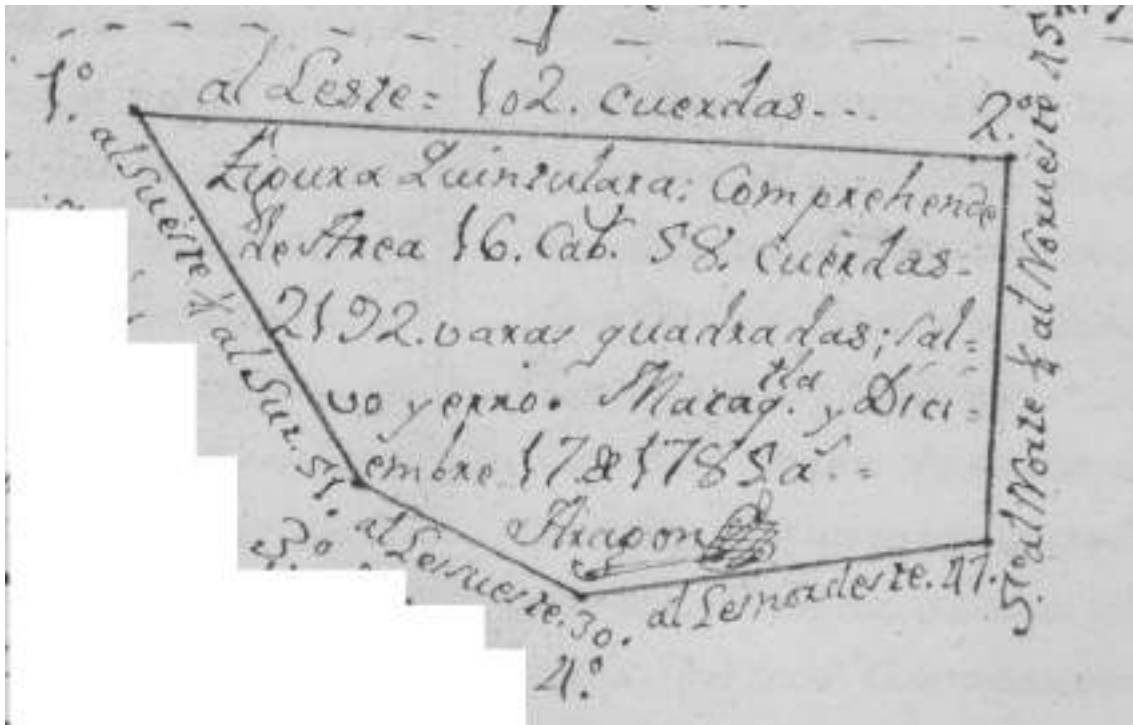 1.º
al Leste = 102. cuerdas...
2.º
Figura Quinsulara: Comprehende
de Area 16. Cab.s 58. cuerdas.
2192. varas quadradas; sal=
vo yerro. Marag.tla y Dici=
embre 17 de 1785 a.s =
Aragon
al Sueste ¼ al Sur. 51.
3.º
al Lessueste. 30.
4.º
al Lesnordeste. 47.
5.º
al Norte ¼ al Norueste 45